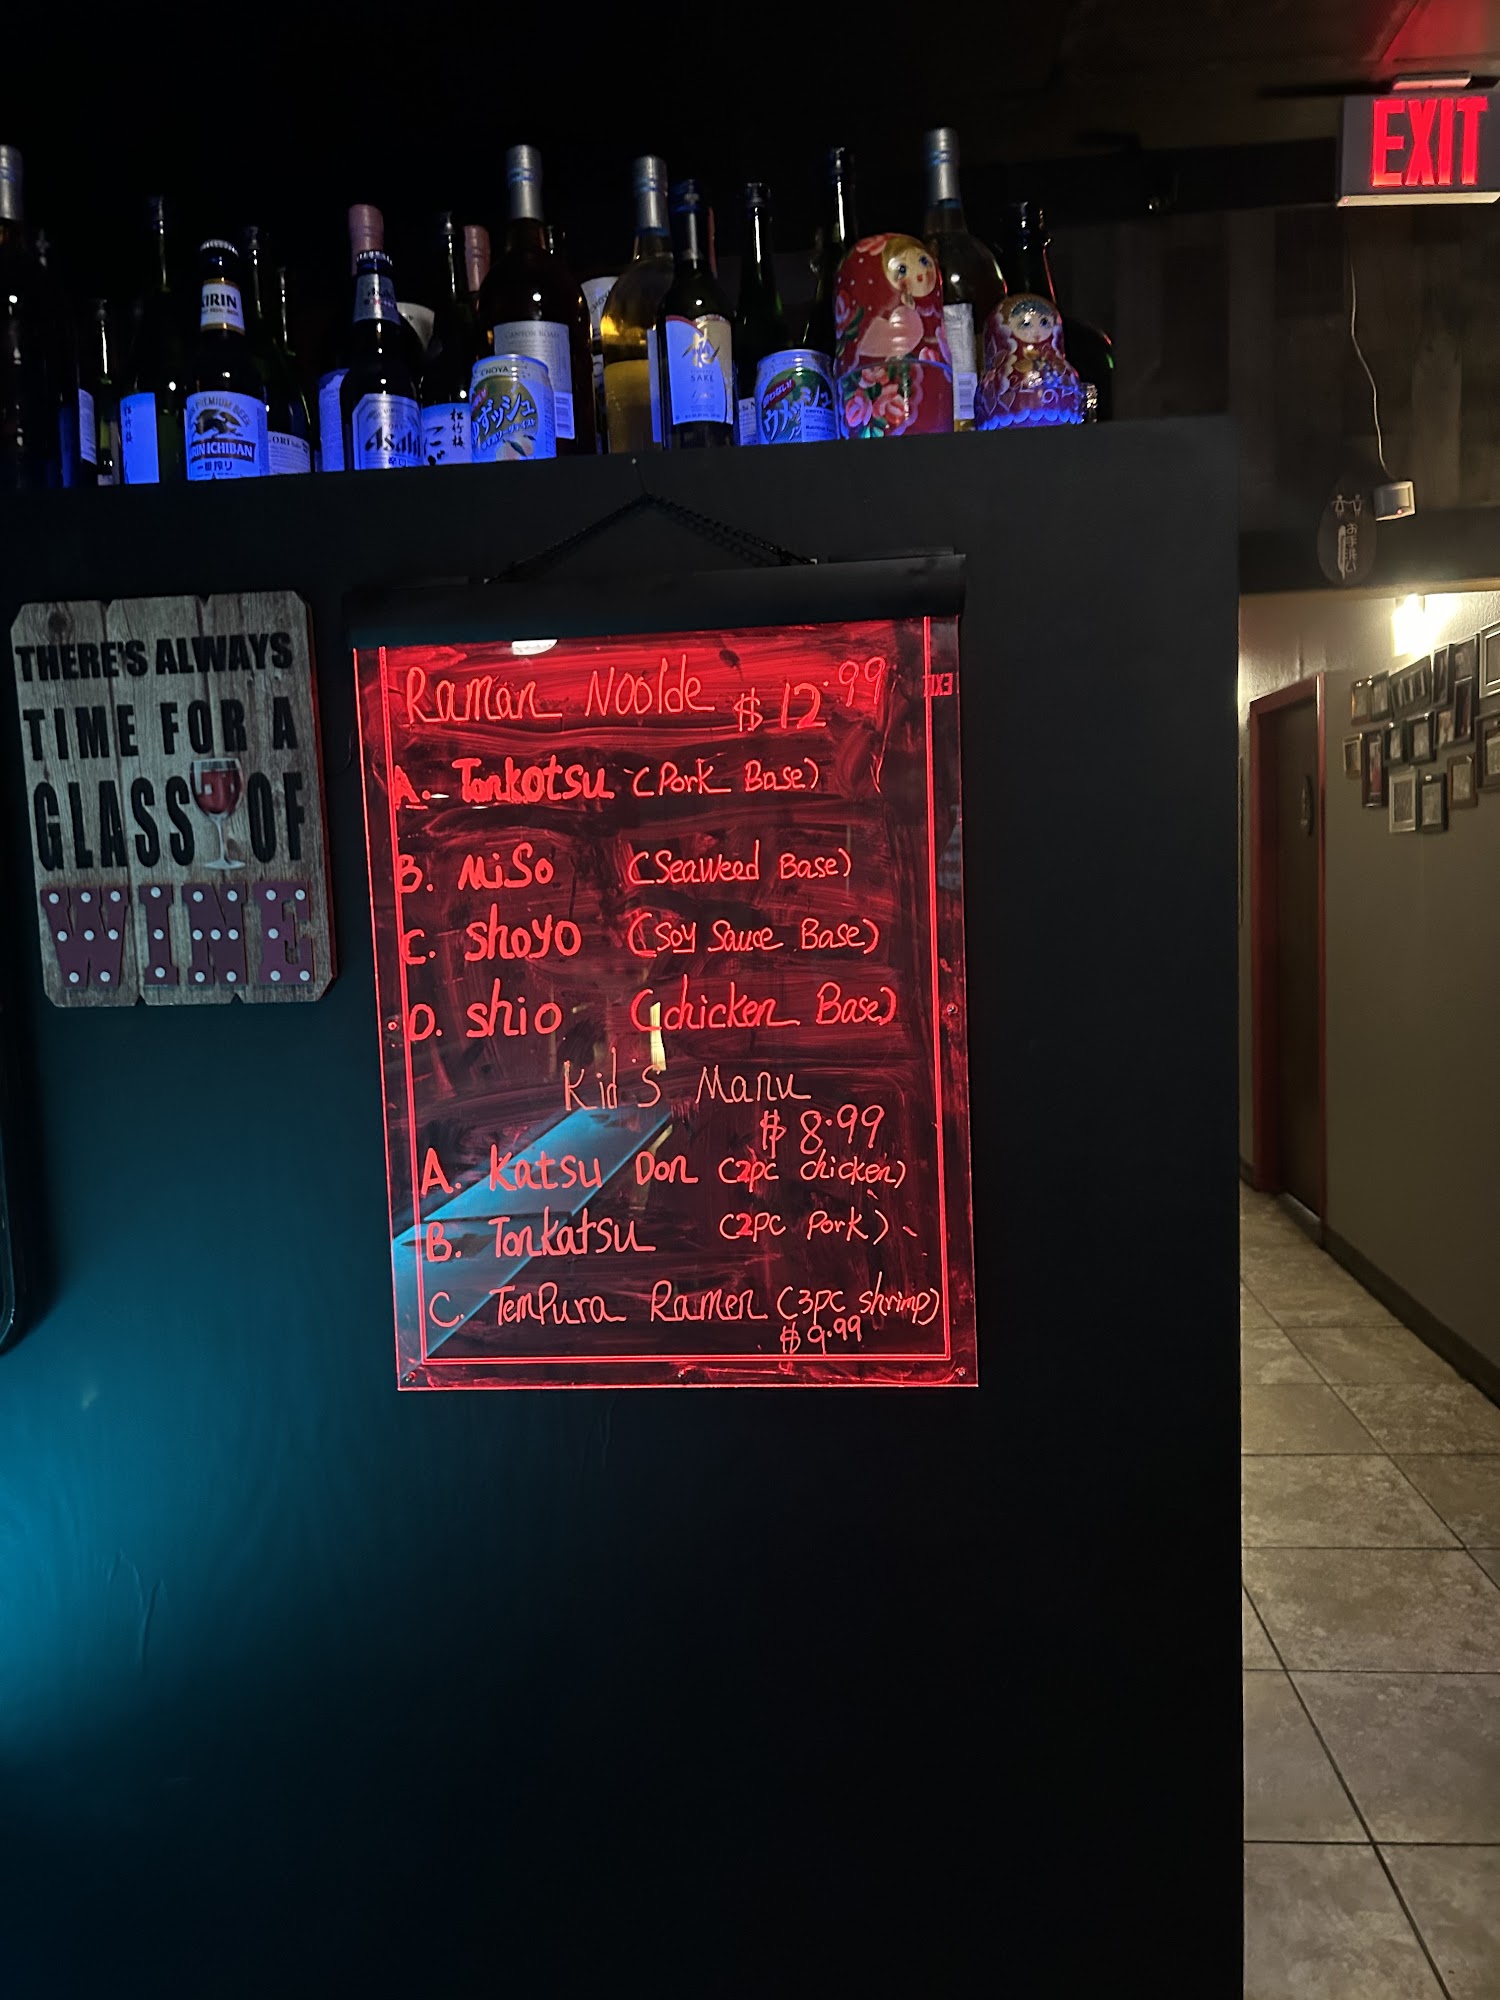 EXIT
KIRIN
PREMIUM BEER
KIRIN ICHIBAN
一番搾り
Asahi
松竹梅
CHOYA
ゆずッシュ
SAKE
ウメッシュ
お手洗い
THERE'S ALWAYS
TIME FOR A
GLASS OF
WINE
Raman Noolde $12.99
A. Tonkotsu (Pork Base)
B. Miso (Seaweed Base)
C. Shoyo (Soy Sauce Base)
D. Shio (Chicken Base)
Kid's Manu
$8.99
A. Katsu Don (2pc chicken)
B. Tonkatsu (2pc Pork)
C. Tempura Ramen (3pc shrimp)
$9.99